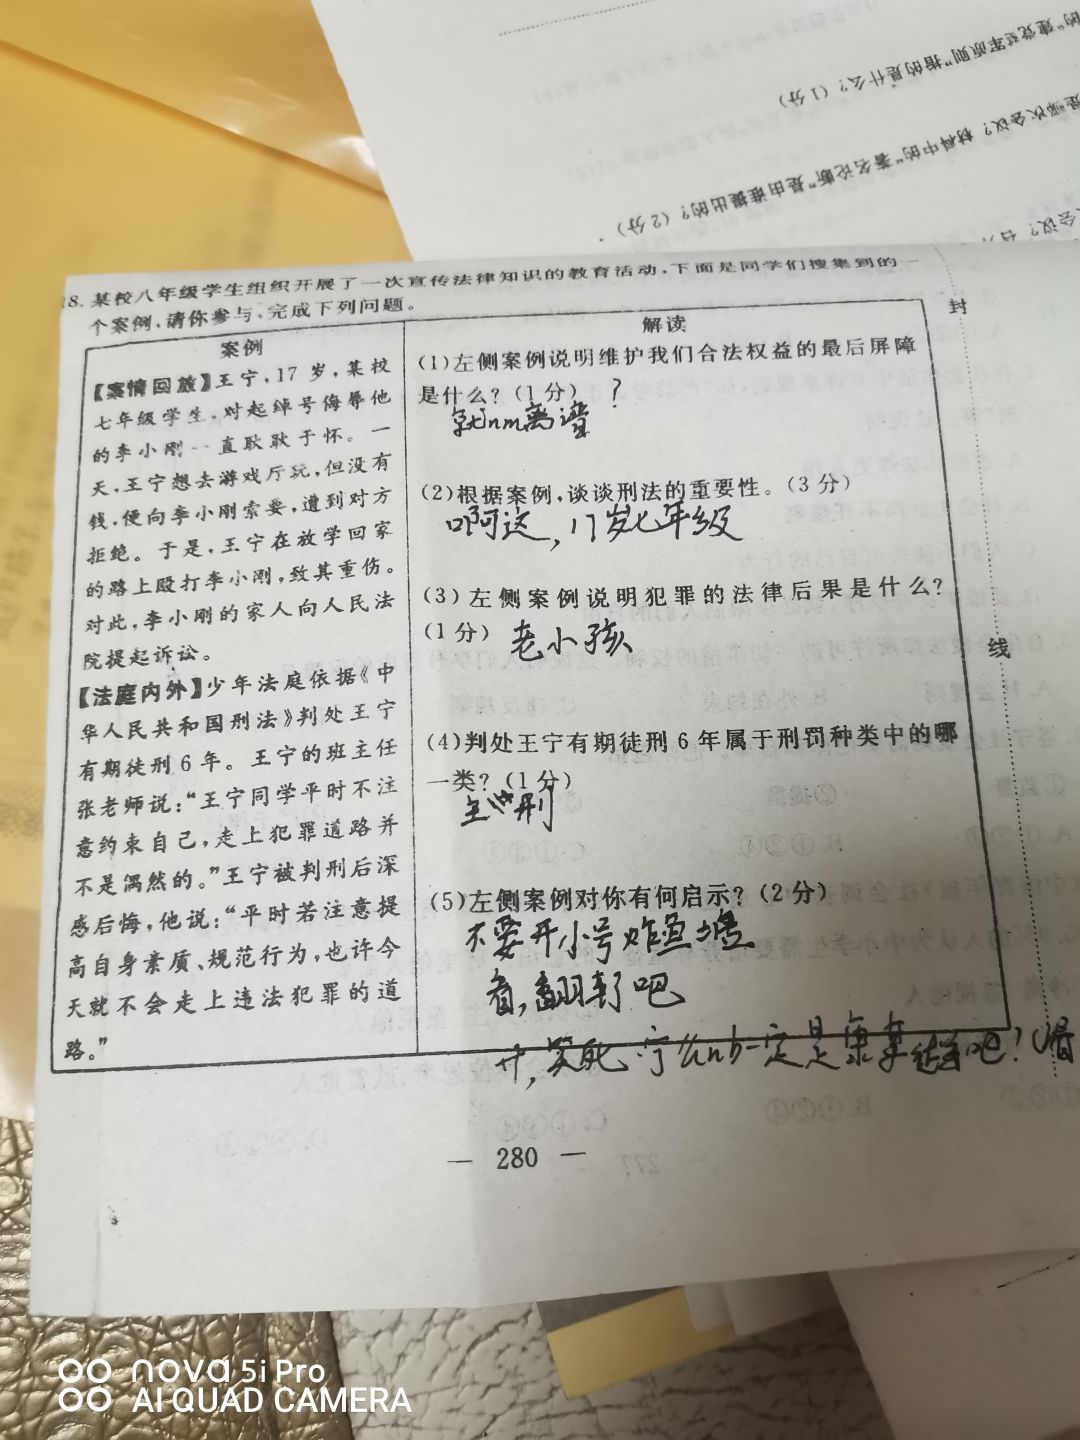 的“建党建军原则”指的是什么？（1分）
是哪次会议？材料中的“著名论断”是由谁提出的？（2分）
18. 某校八年级学生组织开展了一次宣传法律知识的教育活动，下面是同学们搜集到的一
个案例，请你参与，完成下列问题。
案例
【案情回放】王宁，17 岁，某校
七年级学生，对起绰号侮辱他
的李小刚一直耿耿于怀。一
天，王宁想去游戏厅玩，但没有
钱，便向李小刚索要，遭到对方
拒绝。于是，王宁在放学回家
的路上殴打李小刚，致其重伤。
对此，李小刚的家人向人民法
院提起诉讼。
【法庭内外】少年法庭依据《中
华人民共和国刑法》判处王宁
有期徒刑 6 年。王宁的班主任
张老师说：“王宁同学平时不注
意约束自己，走上犯罪道路并
不是偶然的。”王宁被判刑后深
感后悔，他说：“平时若注意提
高自身素质、规范行为，也许今
天就不会走上违法犯罪的道
路。”
解读
(1)左侧案例说明维护我们合法权益的最后屏障
是什么？(1 分) ？
就nm离谱
(2)根据案例，谈谈刑法的重要性。(3 分)
啊这，17岁七年级
(3)左侧案例说明犯罪的法律后果是什么？
(1 分) 老小孩
(4)判处王宁有期徒刑 6 年属于刑罚种类中的哪
一类？(1 分)
主刑
(5)左侧案例对你有何启示？(2 分)
不要开小号炸鱼塘
看，翻车了吧
笑死 宁 一定是 吧？
封
线
— 280 —
nova 5i Pro
AI QUAD CAMERA